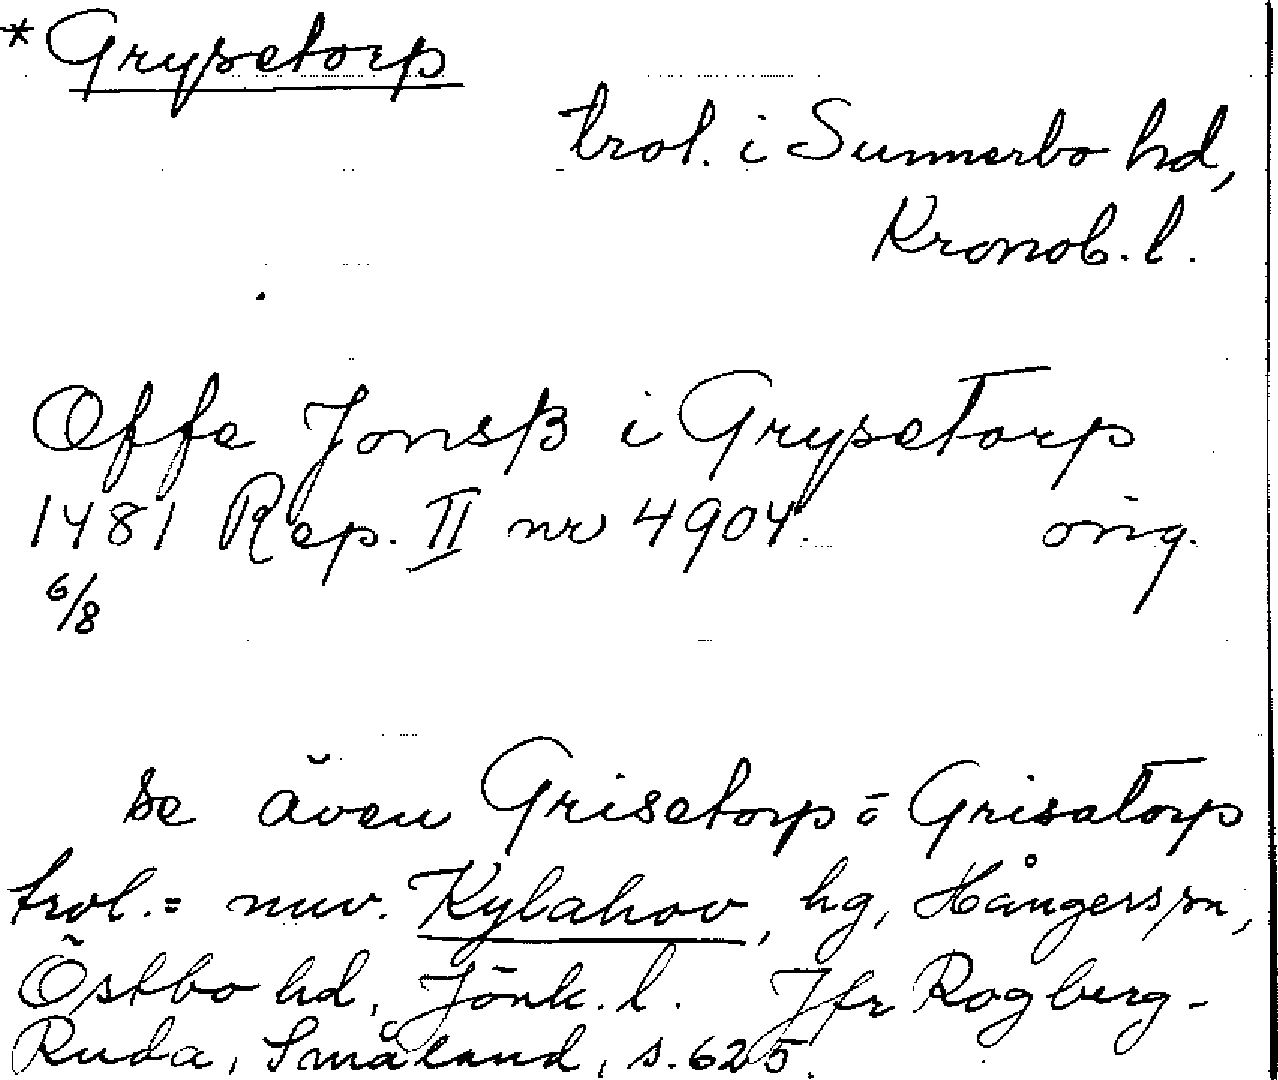 * Grysetorp
trol. i Sunnerbo hd,
Kronob. l.
Offe Jonsß i Grysetorp
1481 Rep. II nr 4904. orig.
6/8
se även Grisetorp = Grisatorp
trol. = nuv. Kylahov, hg, Hångers sn,
Östbo hd, Jönk. l. Jfr Rogberg-
Ruda, Småland, s. 625.